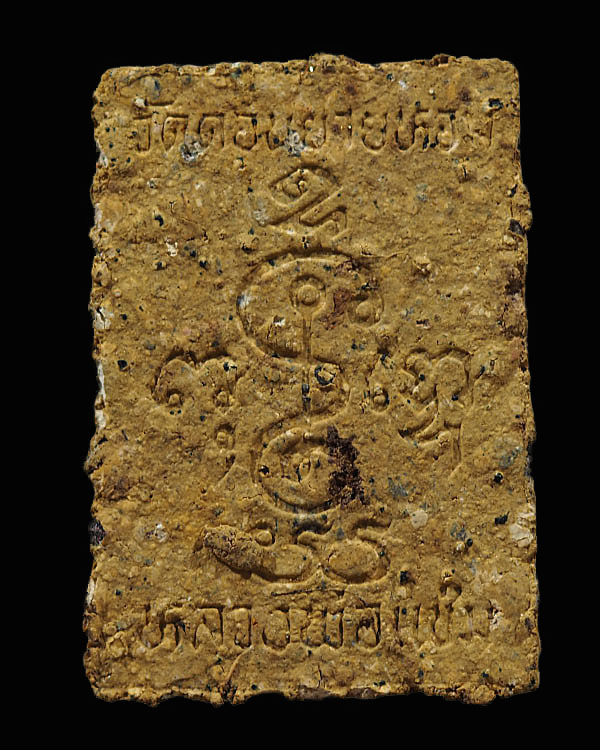 วัดดอนยายหอม
หลวงพ่อแช่ม